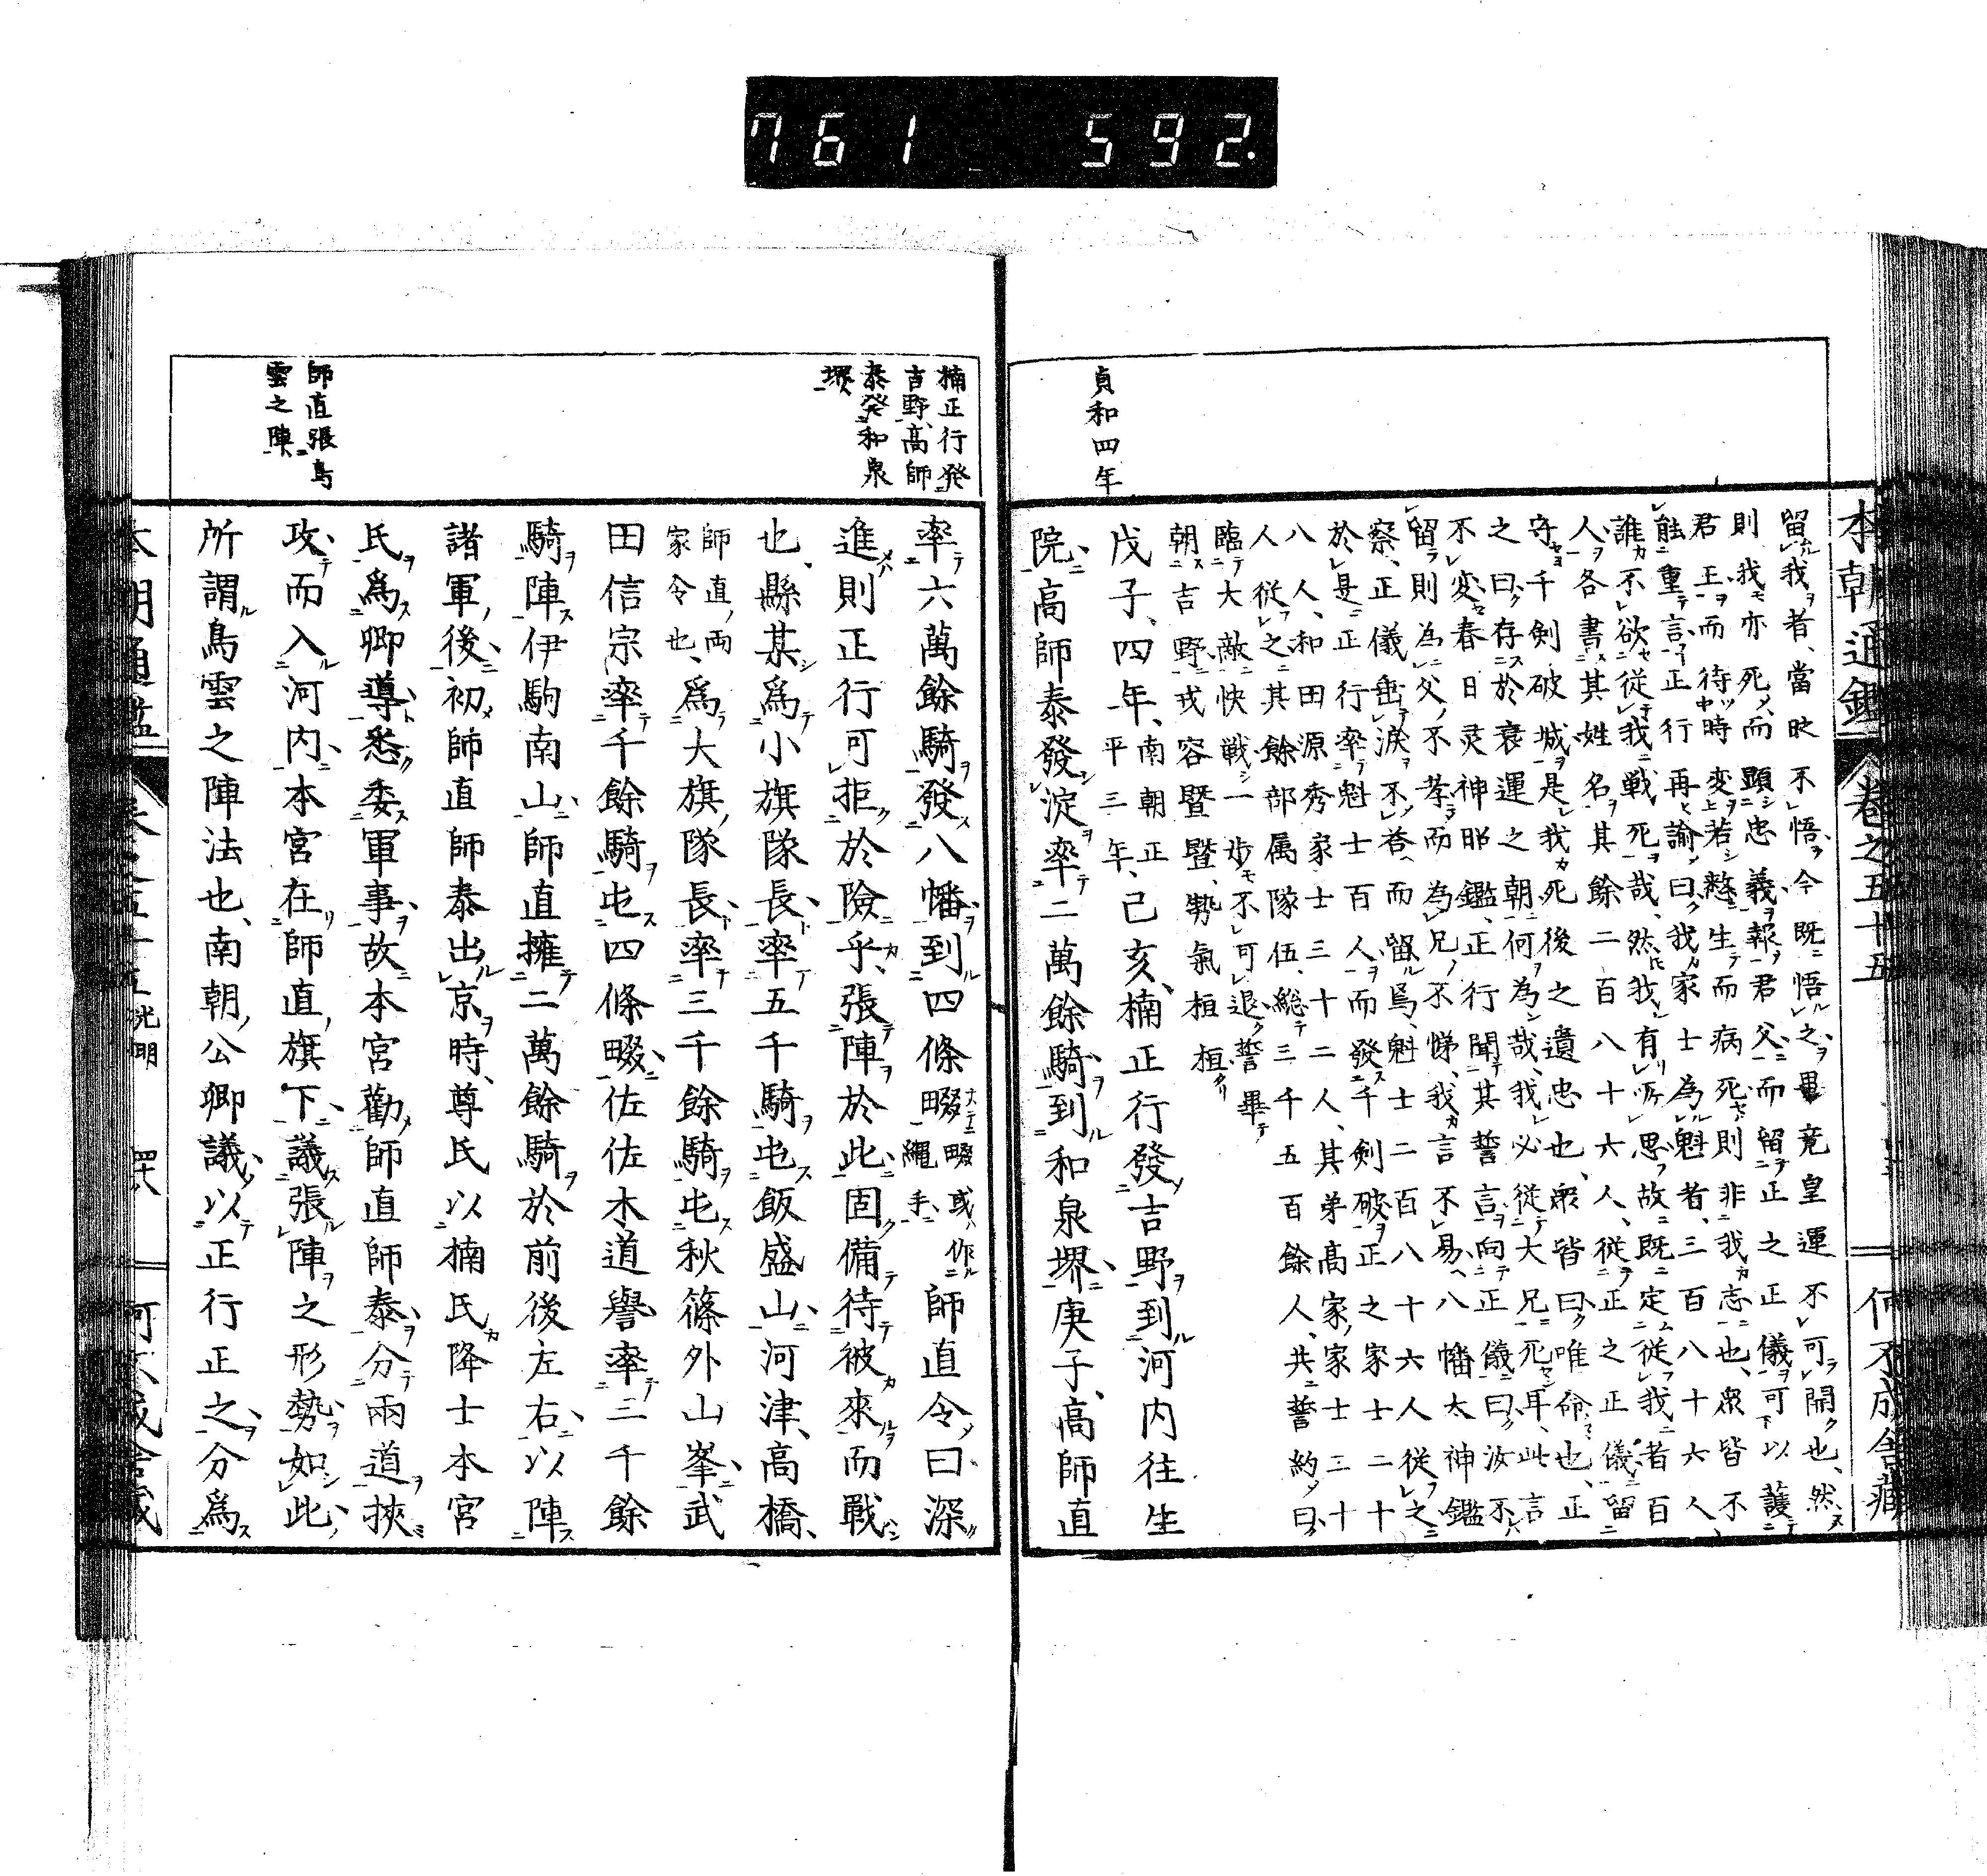 761 592.
本朝通鑑 卷之五十五 何不成舎藏
貞和四年
留我者、當時不悟、今既悟之、畢竟皇運不可開也、然
則我亦死、而顕忠義報君父、而留正之正儀可以護
君王而待時變、若憖生而病死則非我志也、衆皆不
能重言、正行再諭曰、我家士為魁者、三百八十六人、
誰不欲從我戦死哉、然我有所思、故既定從我者百
人、各書其姓名、其餘二百八十六人、從正之正儀、留
守千剣破城、是我死後之遺忠也、衆皆曰、唯命也、正
之曰、存於衰運之朝、何為哉、我必從大兄死耳、此言
不変、春日灵神昭鑑、正行聞其誓言、向正儀曰、汝不
留則為父不孝、而為兄不悌、我言不易、八幡太神鑑
察、正儀垂涙不答、而留焉、魁士二百八十六人從之
於是正行率魁士百人、而發千剣破、正之家士二十
八人、和田源秀家士三十二人、其弟高家、家士二十
人從之、其餘部属隊伍、総三千五百餘人、共誓約曰、
臨大敵快戦、一歩不可退、誓畢
朝吉野、戎容曁曁、㔟氣桓桓
戊子、四年、南朝正平三年、己亥、楠正行發吉野到河内往生
院、高師泰發淀率二萬餘騎到和泉堺、庚子、高師直
楠正行発
吉野、高師
泰発和泉
堺
師直張鳥
雲之陣
率六萬餘騎發八幡到四條畷畷或作縄手、師直令曰、深
進則正行可拒於險乎、張陣於此、固備待彼來而戰
也、縣某為小旗隊長、率五千騎屯飯盛山、河津、高橋、
師直両家令也、為大旗隊長、率三千餘騎屯秋篠外山峯、武
田信宗率千餘騎屯四條畷、佐佐木道譽率二千餘
騎陣伊駒南山、師直擁二萬餘騎於前後左右、以陣
諸軍後、初師直師泰出京時、尊氏以楠氏降士本宮
氏爲卿導、悉委軍事、故本宮勸師直師泰分兩道挾
攻、而入河内、本宮在師直旗下、議張陣之形勢如此、
所謂鳥雲之陣法也、南朝公卿議以正行正之分爲
本朝通鑑 卷之五十五 光明 四十六 何不成舎藏